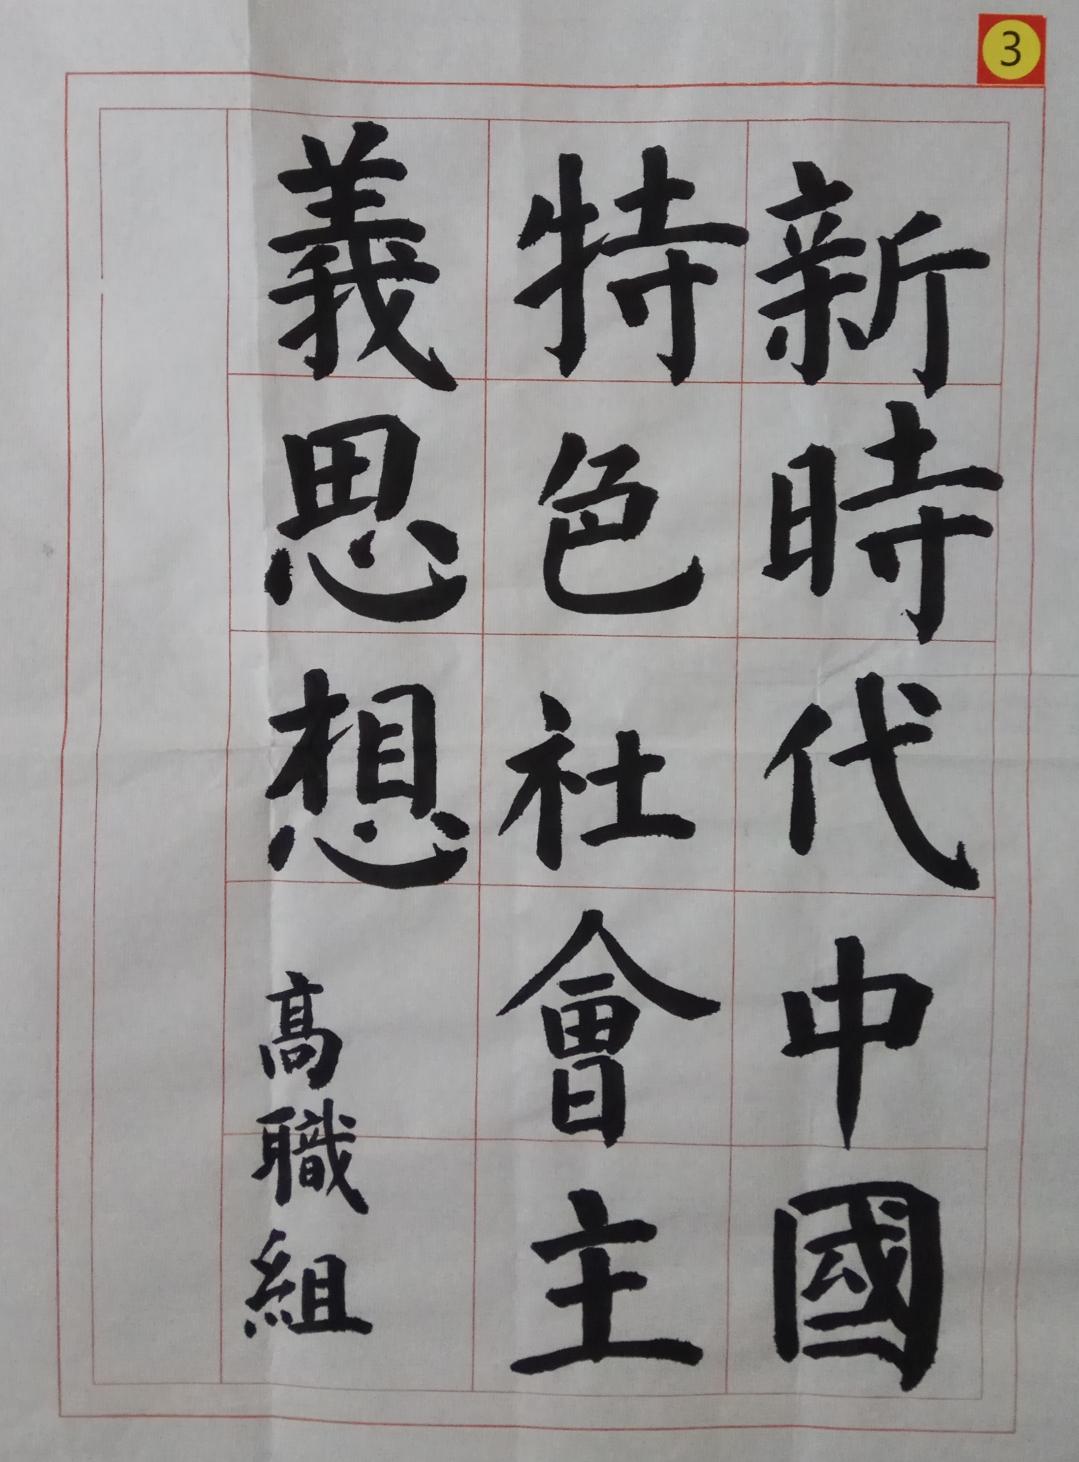 3
新時代中國
特色社會主
義思想
高職組